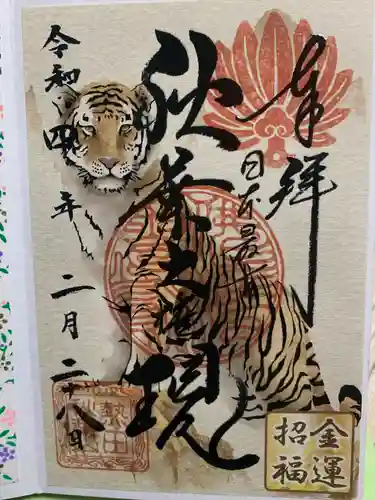 奉拝
日本最古
秋葉大権現
令和四年二月二十八日
金運
招福